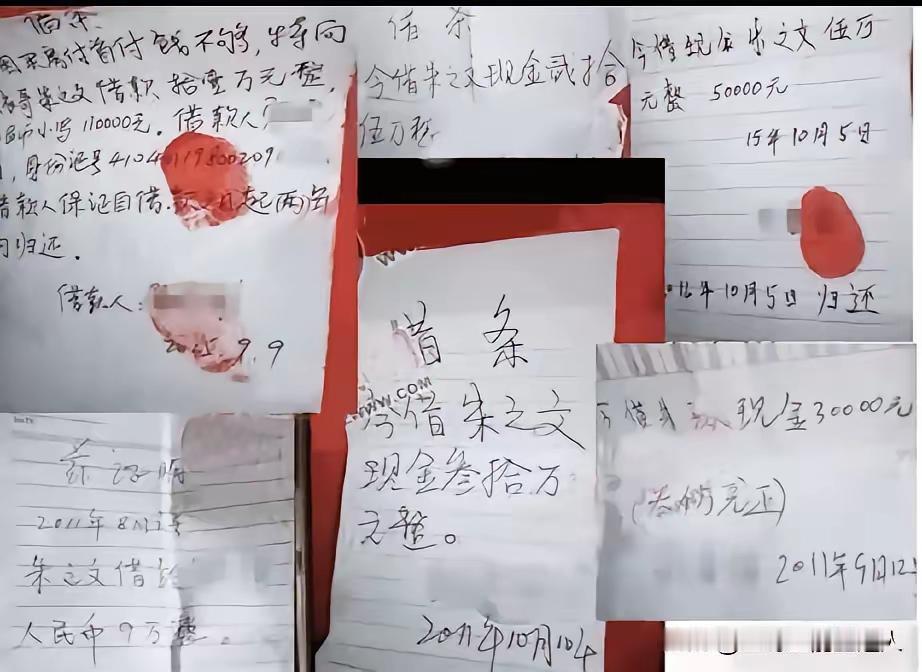 借条
因买房付首付钱不够,特向
表哥朱之文借款 拾壹万元整,
小写110000元。借款人
身份证号41040119800209
借款人保证自借款之日起两年
内归还。
借款人:
2015.9.9
借 条
今借朱之文现金贰拾
伍万整
今借现金朱之文伍万
元整 50000元
15年10月5日
16年10月5日 归还
借 条
www.com
今借朱之文
现金叁拾万
元整。
2011年10月10
2011年8月
朱之文借给
人民币9万整。
现金30000元
2011年9月12